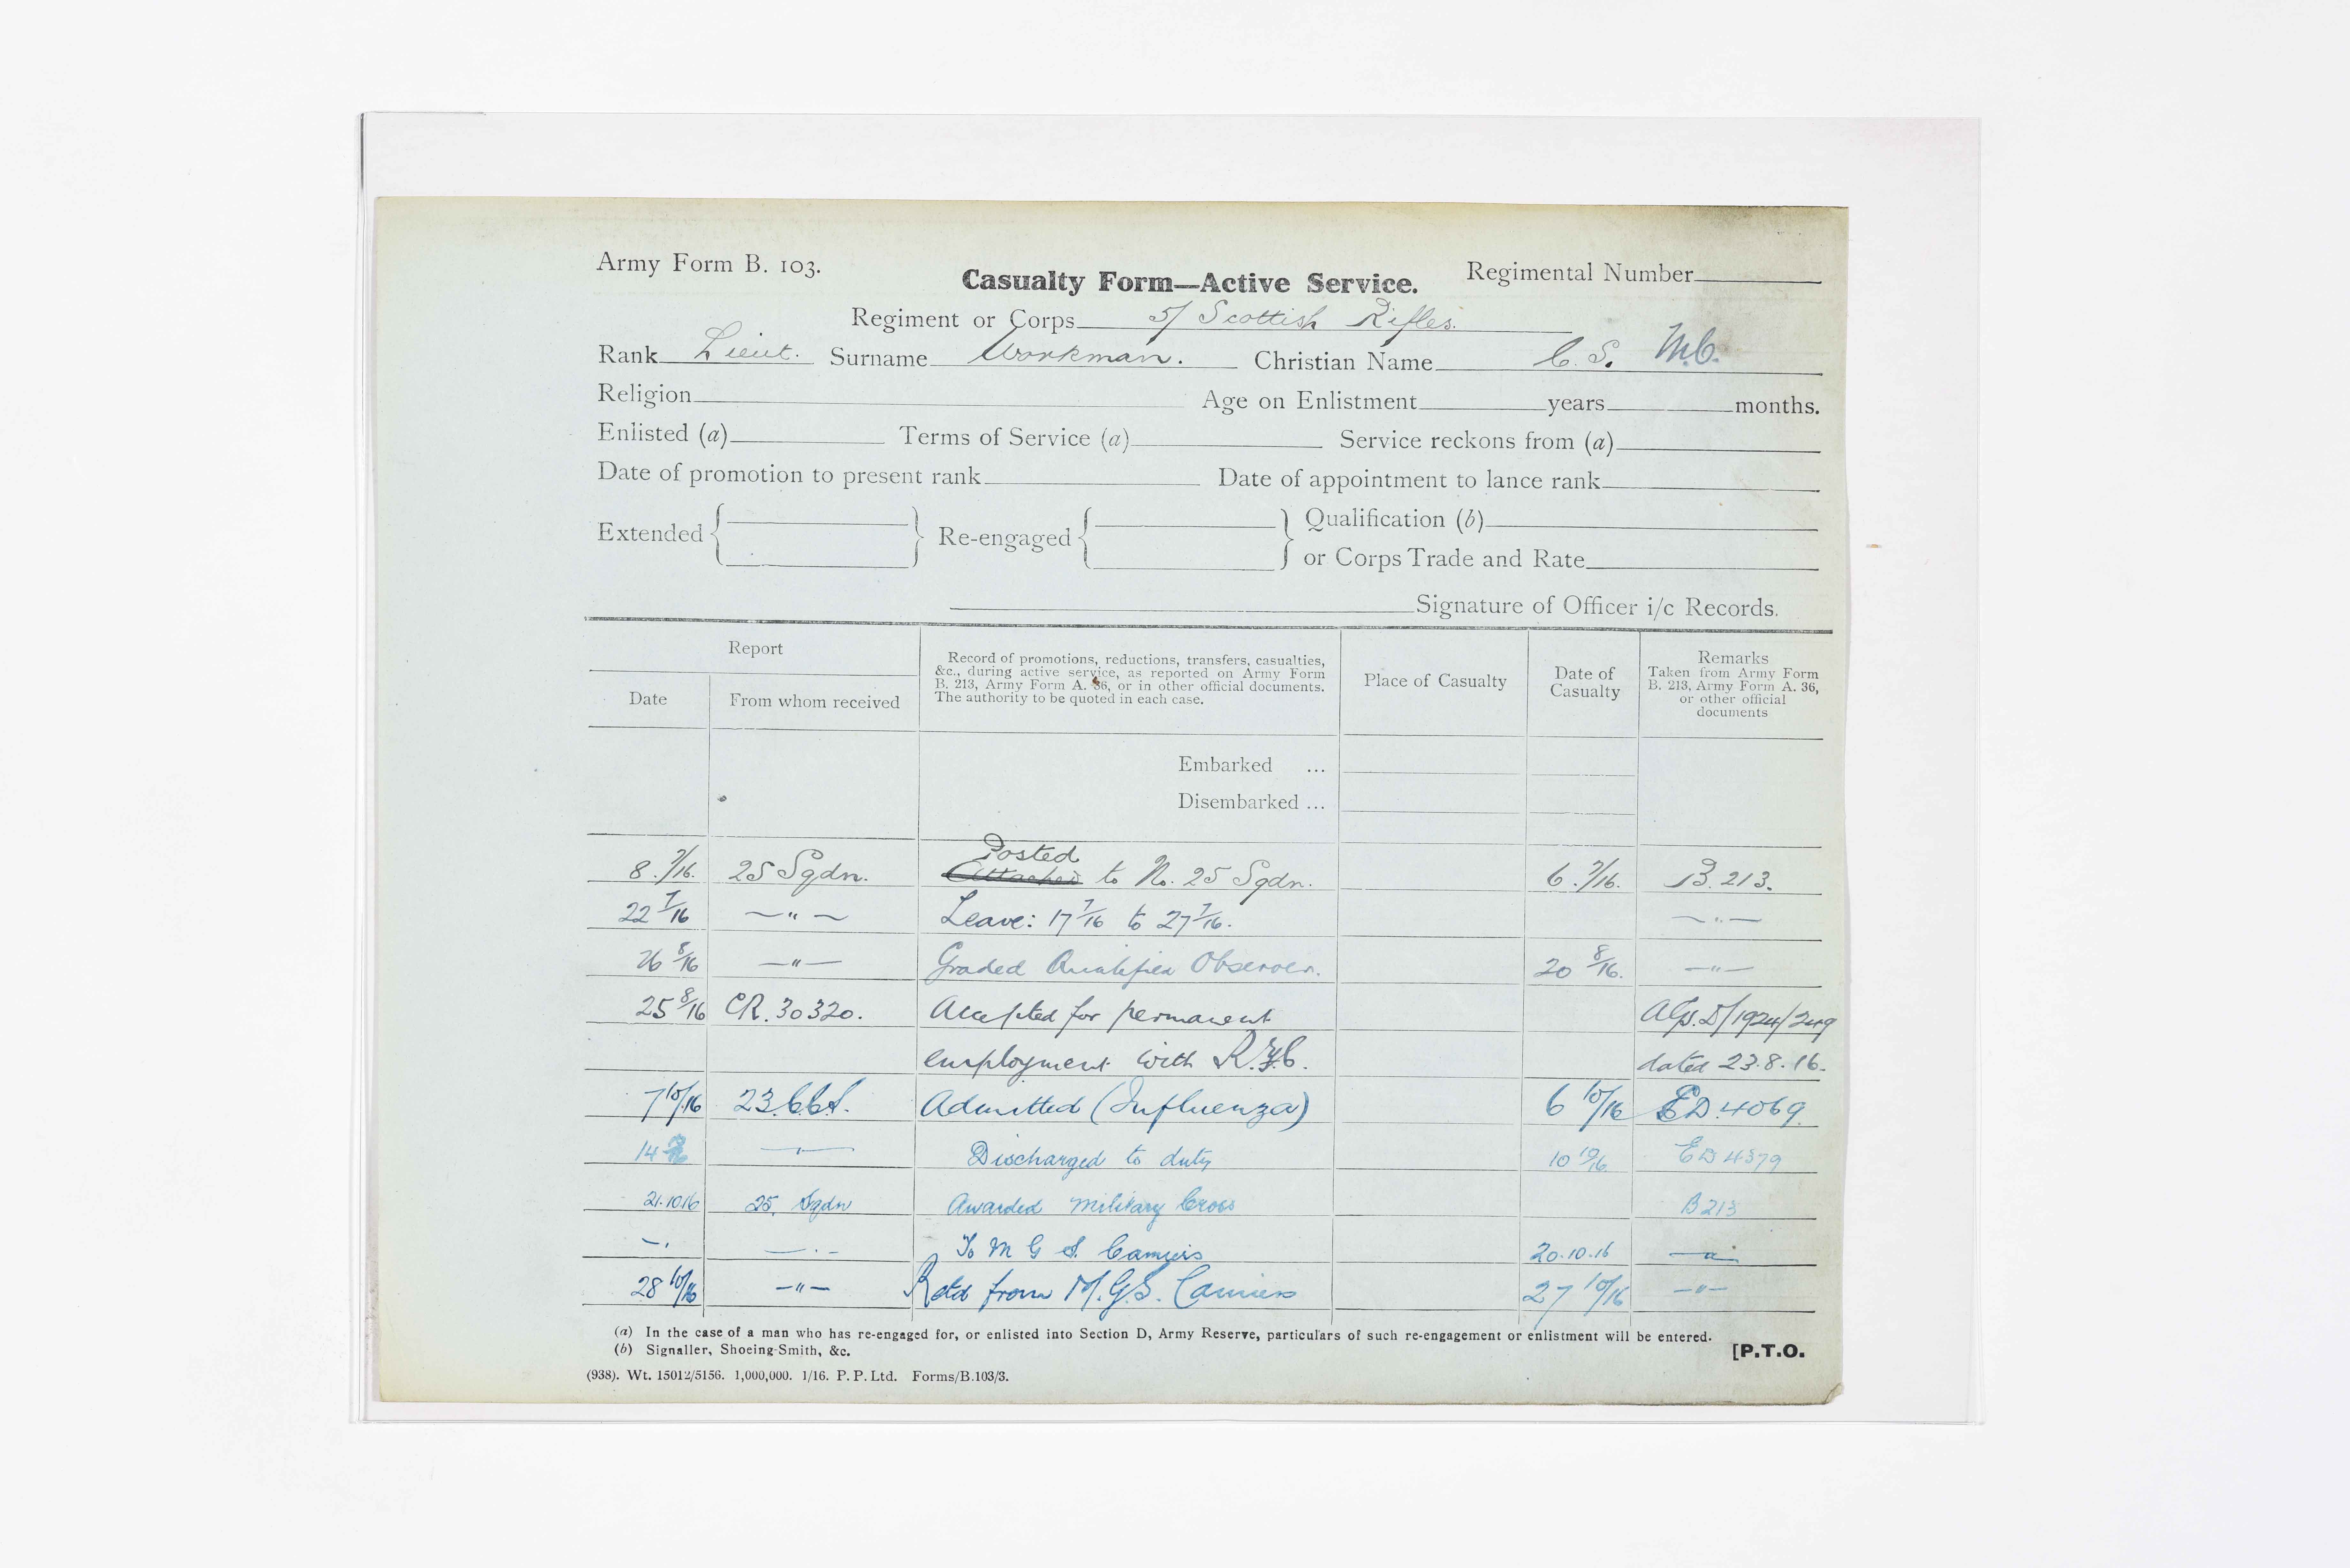 Army Form B. 103.
Casualty Form—Active Service.
Regimental Number
Regiment or Corps 5/ Scottish Rifles.
Rank Lieut. Surname Workman. Christian Name C. S. M.C.
Religion Age on Enlistment years months.
Enlisted (a) Terms of Service (a) Service reckons from (a)
Date of promotion to present rank Date of appointment to lance rank
Extended Re-engaged Qualification (b)
or Corps Trade and Rate
Signature of Officer i/c Records.
Report
Date From whom received
Record of promotions, reductions, transfers, casualties,
&c., during active service, as reported on Army Form
B. 213, Army Form A. 36, or in other official documents.
The authority to be quoted in each case.
Place of Casualty
Date of
Casualty
Remarks
Taken from Army Form
B. 213, Army Form A. 36,
or other official
documents
Embarked ...
Disembarked ...
Posted
8 7/16. 25 Sqdn. Attached to No. 25 Sqdn. 6 7/16. B. 213.
22 7/16 —"— Leave: 17 7/16 to 27 7/16. —"—
26 8/16 —"— Graded Qualified Observer. 20 8/16. —"—
25 8/16 CR. 30320. Accepted for permanent D/1924/249
employment with R.F.C. dated 23.8.16.
7 10/16 23.C.C.S. Admitted (Influenza) 6 10/16 ED.4069.
14 —"— Discharged to duty 10 10/16 ED 4379
21.10.16 25 Sqdn Awarded Military Cross B213
—"— —"— To M G S. Camiers 20.10.16 —"—
28 10/16 —"— Retd from M.G.S. Camiers 27 10/16 —"—
(a) In the case of a man who has re-engaged for, or enlisted into Section D, Army Reserve, particulars of such re-engagement or enlistment will be entered.
(b) Signaller, Shoeing-Smith, &c.
[P.T.O.
(938). Wt. 15012/5156. 1,000,000. 1/16. P. P. Ltd. Forms/B.103/3.